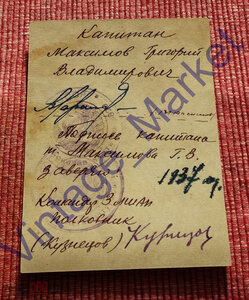 Капитан
Максимов Григорий
Владимирович
Подпись капитана
т. Максимова Г. В.
заверяю
1937 г.
Командир
Полковник
(Кузнецов) Кузнецов
Vintage Market